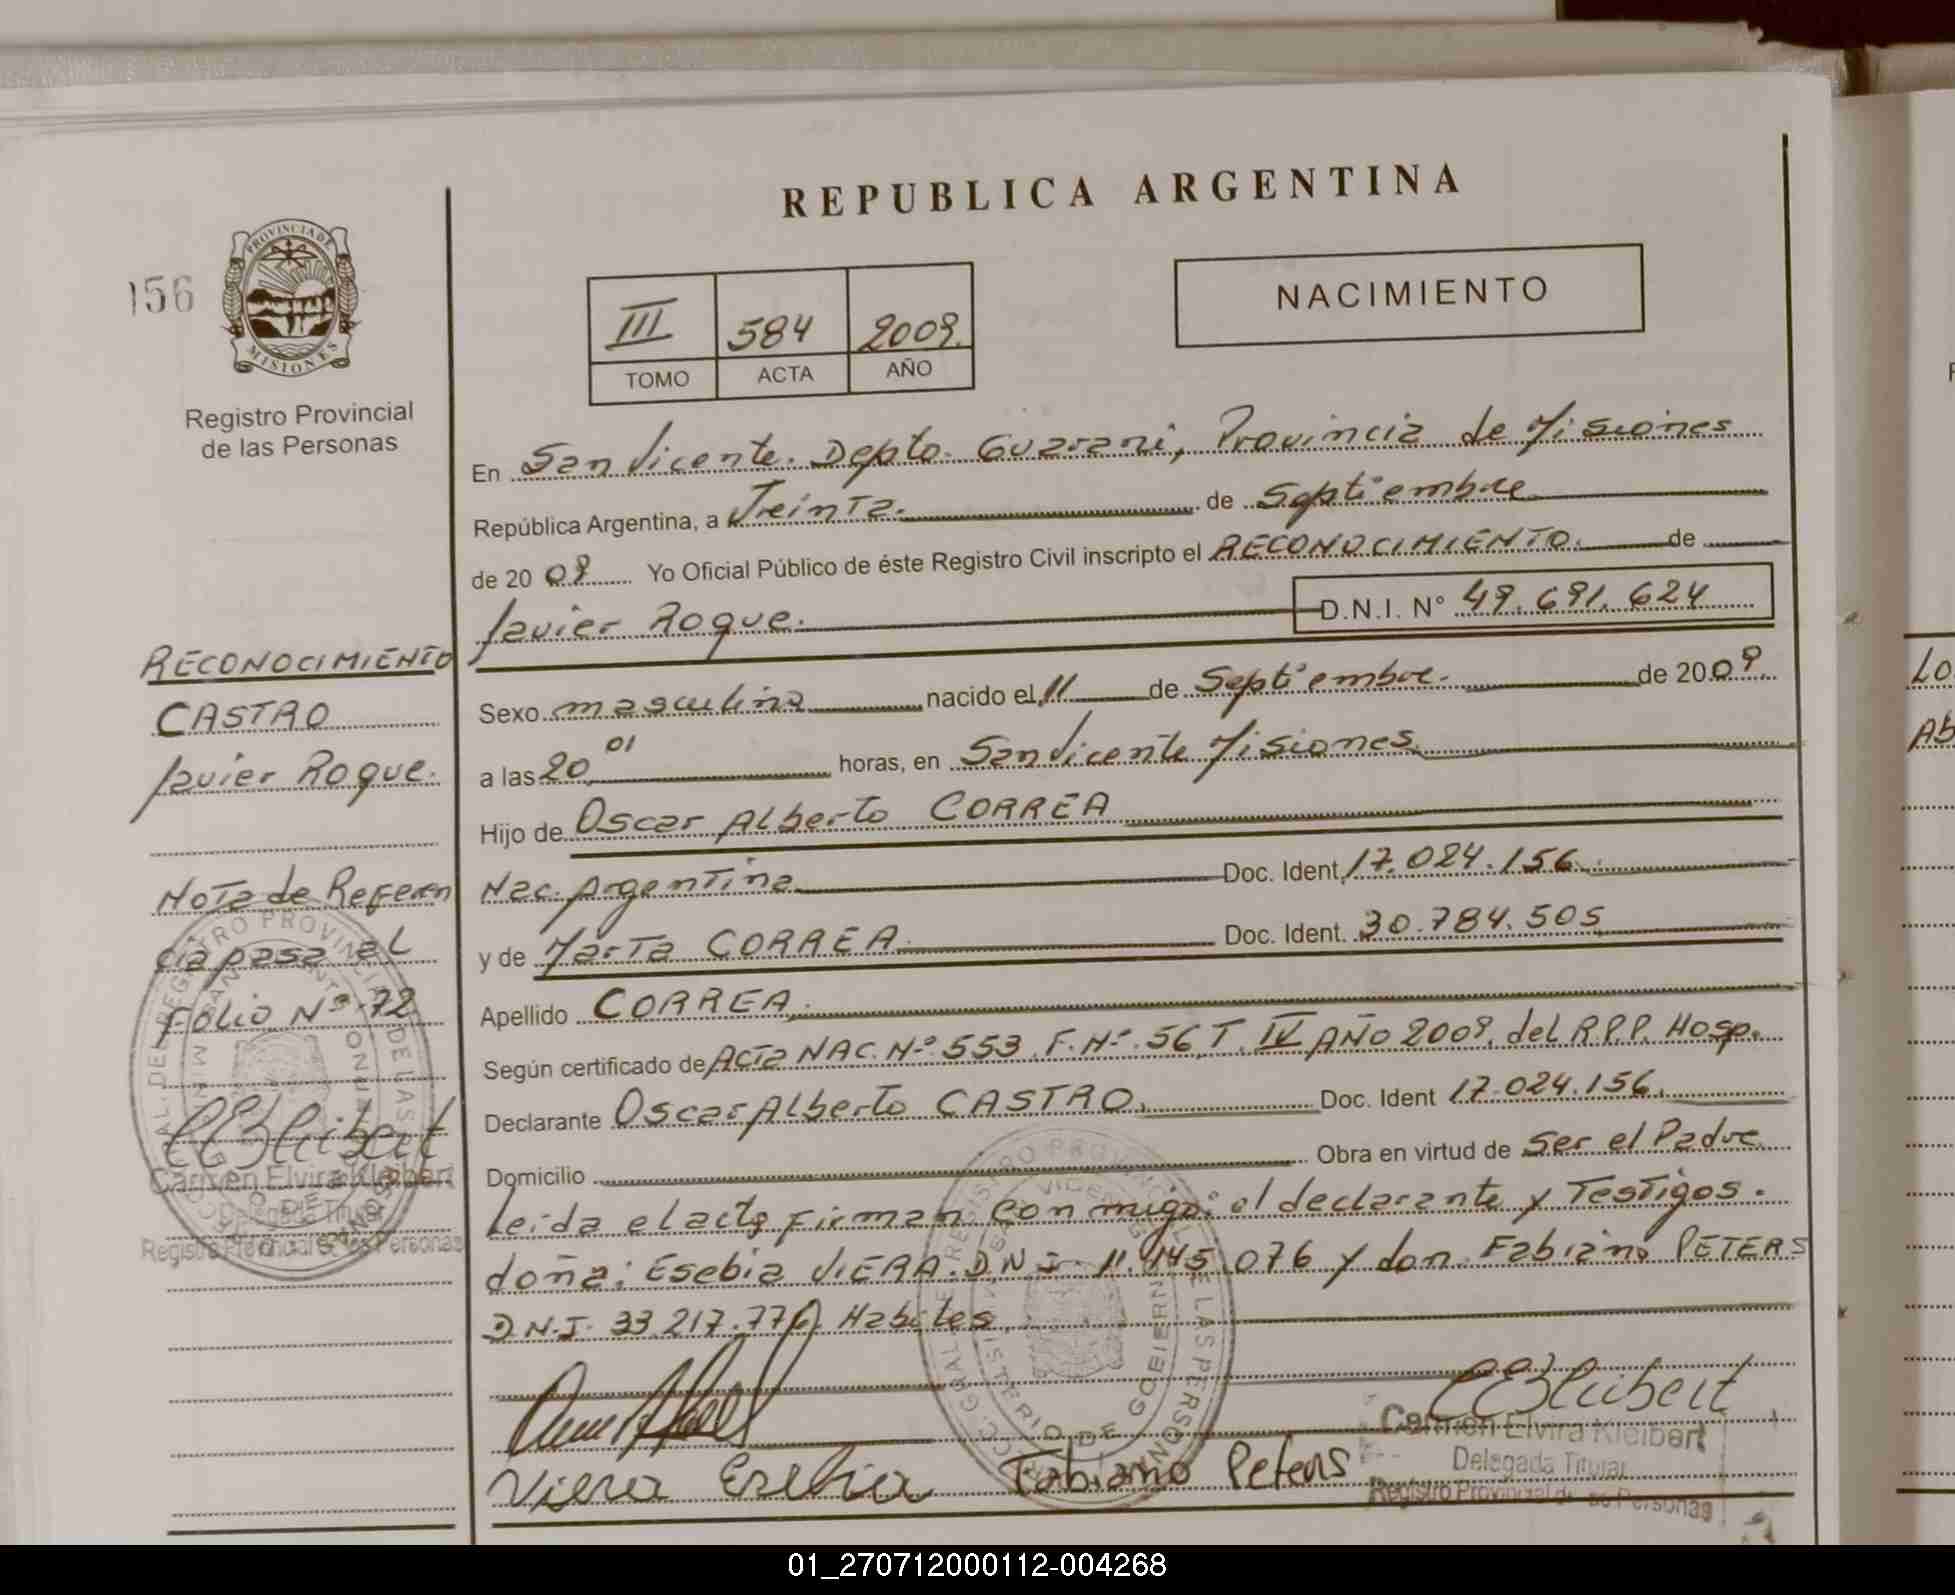 REPUBLICA ARGENTINA
156
PROVINCIA DE
MISIONES
Registro Provincial
de las Personas
III 584 2009.
TOMO ACTA AÑO
NACIMIENTO
En San Vicente. Depto. Guarani, Provincia de Misiones
República Argentina, a Treinta. de Septiembre
de 20 09 Yo Oficial Público de éste Registro Civil inscripto el RECONOCIMIENTO. de
Javier Roque. D.N.I. N° 49.691.624
Sexo masculino nacido el 11 de Septiembre. de 2009.
a las 20 01 horas, en San Vicente Misiones
Hijo de Oscar Alberto CORREA
Nac. Argentina Doc. Ident. 17.024.156.
y de Marta CORREA Doc. Ident. 30.784.505
Apellido CORREA.
Según certificado de Acta NAC. Nº 553 F. Nº 56 T. IV AÑO 2009. del R.P.P. Hosp.
Declarante Oscar Alberto CASTRO. Doc. Ident 17.024.156.
Domicilio Obra en virtud de Ser el Padre
Leida el acta firman conmigo: el declarante y Testigos.
doña: Esebia VIERA. D.N.I. 11.145.076 y don Fabiano PETERS
D.N.I. 33.217.776 Habiles
Viera Esebia Fabiano Peters
Carmen Elvira Kleibert
Delegada Titular
Registro Provincial de las Personas
RECONOCIMIENTO
CASTRO
Javier Roque.
Nota de Referen
cia pasa al
Folio Nº 72
Carmen Elvira Kleibert
Delegada Titular
Registro Provincial de las Personas
Lo
Ab
01_270712000112-004268